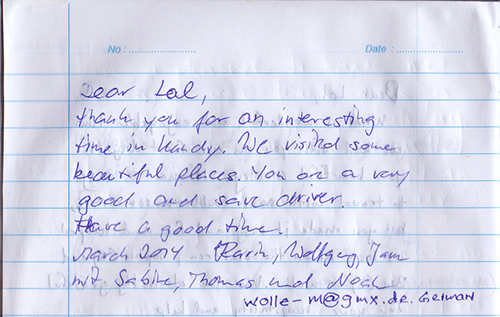 No : ........................ Date : ........................
Dear Lal,
thank you for an interesting
time in Kandy. We visited some
beautiful places. You are a very
good and save driver.
Have a good time.
March 2014 Karin, Wolfgang, Jann
mit Sabine, Thomas und Noah
wolle-m@gmx.de. German